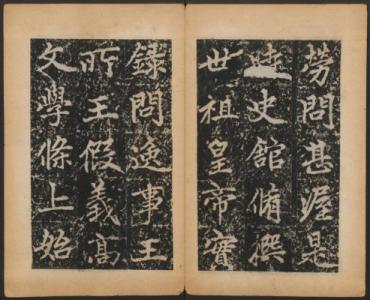 勞問甚渥是
時史館脩撰
世祖皇帝實
錄問逸事王
所王假義高
文學條上始